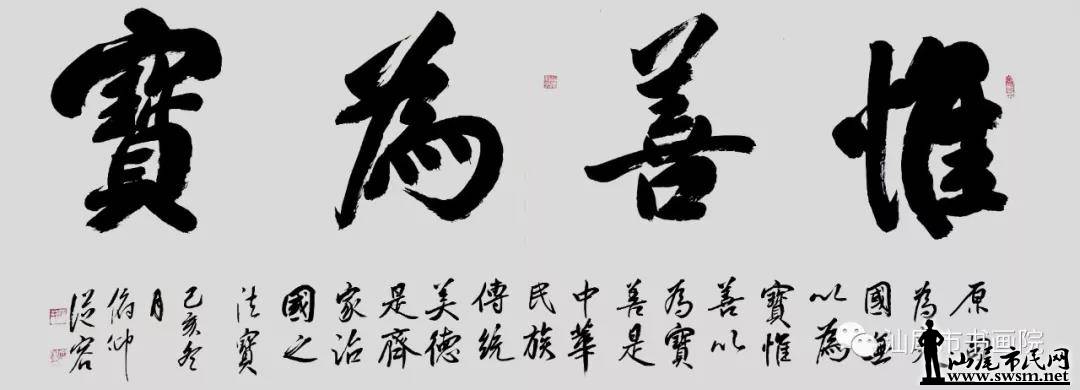 惟善為寶
原
為
國無
以為
寶惟
善以
為寶
善是
中華
民族
傳統
美德
是齊
家治
國之
法寶
己亥冬
月
俯仰
從容
汕尾市书画院
汕尾市民网
www.swsm.net